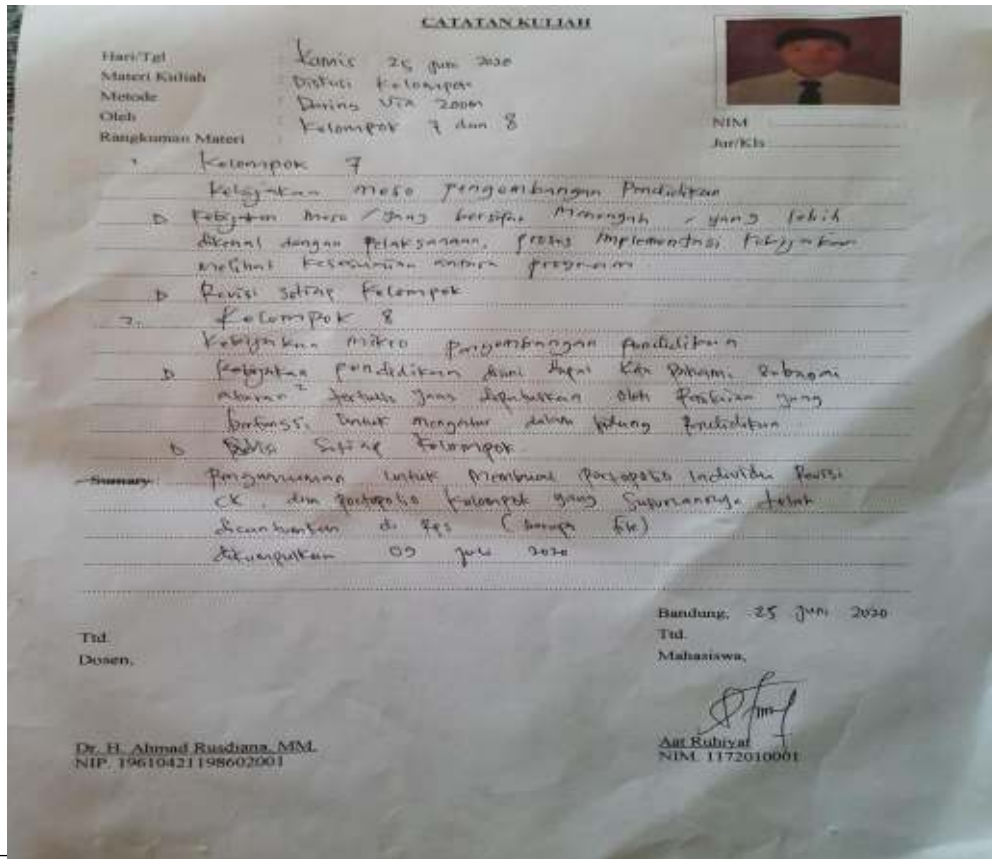 CATATAN KULIAH
Hari/Tgl : Kamis 25 Juni 2020
Materi Kuliah : Diskusi Kelompok
Metode : Daring Via Zoom
Oleh : Kelompok 7 dan 8
Rangkuman Materi :
NIM
Jur/Kls
1. Kelompok 7
Kebijakan meso pengembangan Pendidikan
Kebijakan meso / yang bersifat Menengah / yang lebih
dikenal dengan Pelaksanaan, proses Implementasi Kebijakan
Melihat kesesuaian antara program
Revisi setiap Kelompok
2. Kelompok 8
Kebijakan mikro pengembangan pendidikan
Kebijakan pendidikan dapat kita pahami sebagai
aturan² tertulis yang diputuskan oleh yang
untuk mengatur dalam bidang pendidikan
Setiap Kelompok
Sumary : untuk Membuat portopolio Individu Revisi
CK, dan portopolio kelompok yang Susunannya telah
dicantumkan di RPS (berupa file)
dikumpulkan 09 Juli 2020
Bandung, 25 Juni 2020
Ttd.
Dosen,
Ttd.
Mahasiswa,
Dr. H. Ahmad Rusdiana, MM.
NIP. 19610421198602001
Aat Ruhiyat
NIM. 1172010001